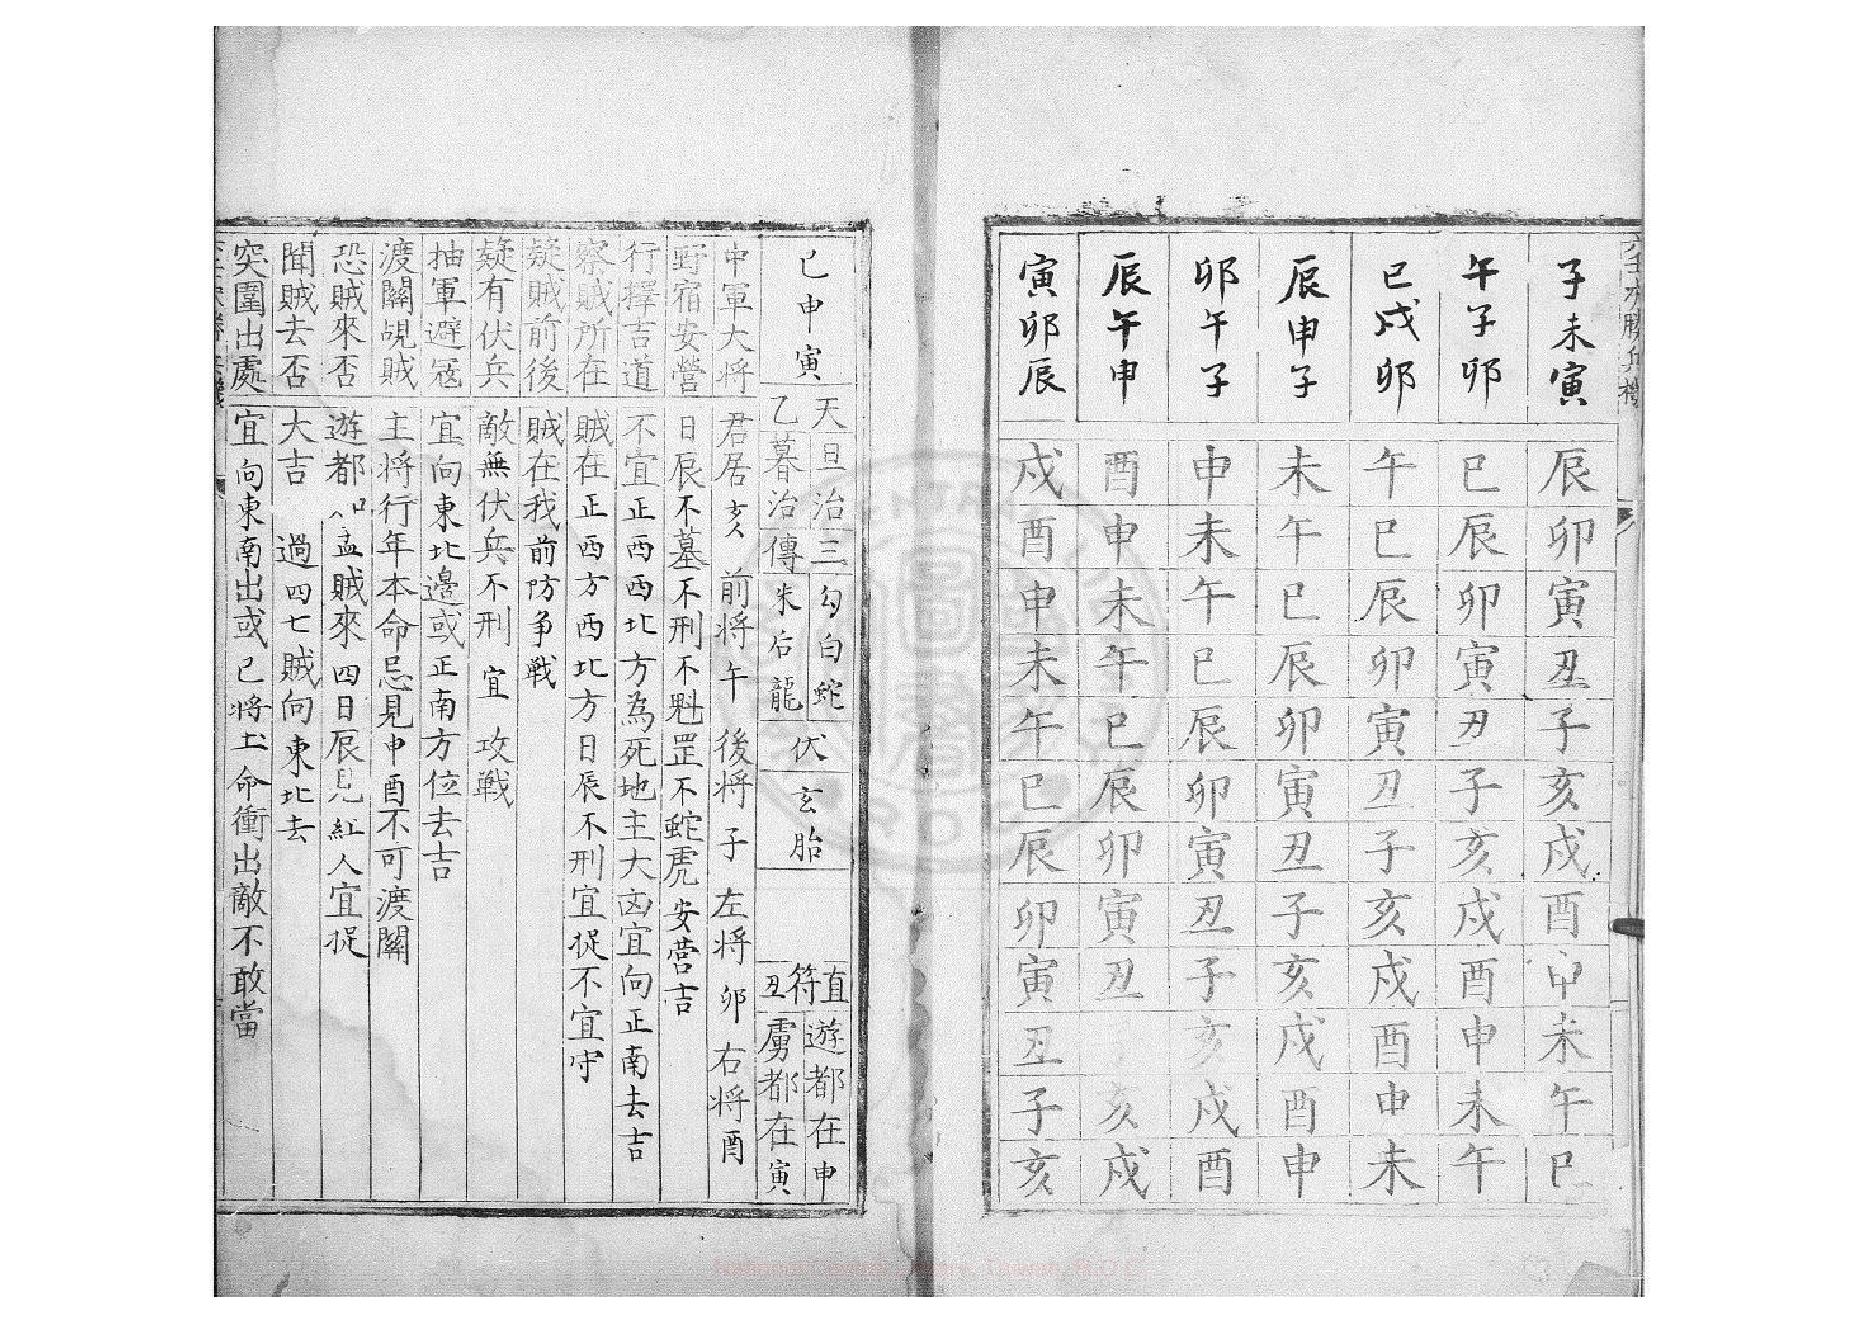 子未寅 辰 卯 寅 丑 子 亥 戌 酉 申 未 午 巳
午子卯 巳 辰 卯 寅 丑 子 亥 戌 酉 申 未 午
巳戌卯 午 巳 辰 卯 寅 丑 子 亥 戌 酉 申 未
辰申子 未 午 巳 辰 卯 寅 丑 子 亥 戌 酉 申
卯午子 申 未 午 巳 辰 卯 寅 丑 子 亥 戌 酉
辰午申 酉 申 未 午 巳 辰 卯 寅 丑 亥 戌
寅卯辰 戌 酉 申 未 午 巳 辰 卯 寅 丑 子 亥
巳申寅
天旦治三
乙暮治傳
勾白蛇
朱后龍
伏
玄胎
直符丑
遊都在申
虜都在寅
中軍大將 君居亥 前將午 後將子 左將卯 右將酉
野宿安營 日辰不墓不刑不魁罡不蛇虎安营吉
行擇吉道 不宜正西西北方為死地主大凶宜向正南去吉
察賊所在 賊在正西方西北方日辰不刑宜捉不宜守
疑賊前後 賊在我前防争戦
疑有伏兵 敵無伏兵不刑 宜 攻戦
抽軍避冦 宜向東北邊或正南方位去吉
渡關覘賊 主將行年本命忌見申酉不可渡關
恐賊來否 遊都加孟賊來四日辰見紅人宜捉
聞賊去否 大吉 過四七賊向東北去
突圍出處 宜向東南出或已將士命衝出敵不敢當